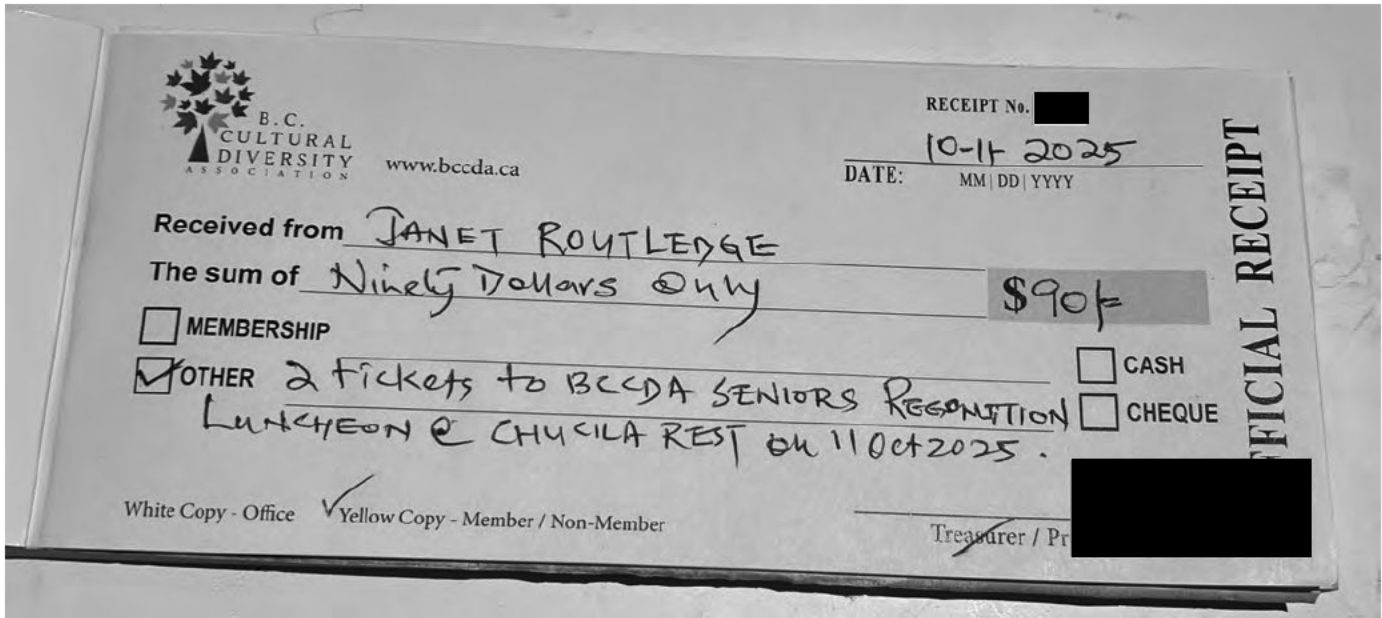 B.C.
CULTURAL
DIVERSITY
ASSOCIATION
www.bccda.ca
RECEIPT No.
10-11- 2025
DATE:
MM | DD | YYYY
OFFICIAL RECEIPT
Received from JANET ROUTLEDGE
The sum of Ninety Dollars Only
$90/=
MEMBERSHIP
CASH
OTHER 2 tickets to BCCDA SENIORS REGONITION
CHEQUE
LUNCHEON @ REST on 11 Oct 2025.
White Copy - Office
Yellow Copy - Member / Non-Member
Treasurer / Pr